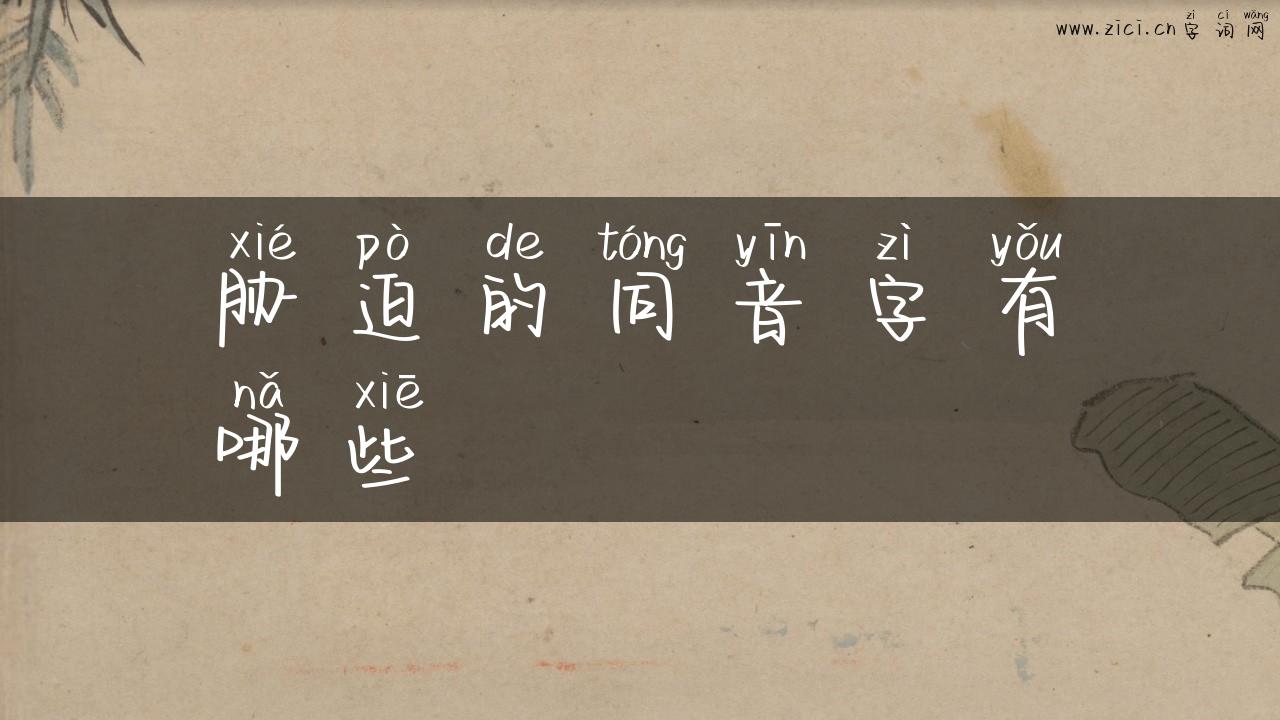 zì cí wǎng
www.zici.cn 字词网
xié pò de tóng yīn zì yǒu
胁迫的同音字有
nǎ xiē
哪些